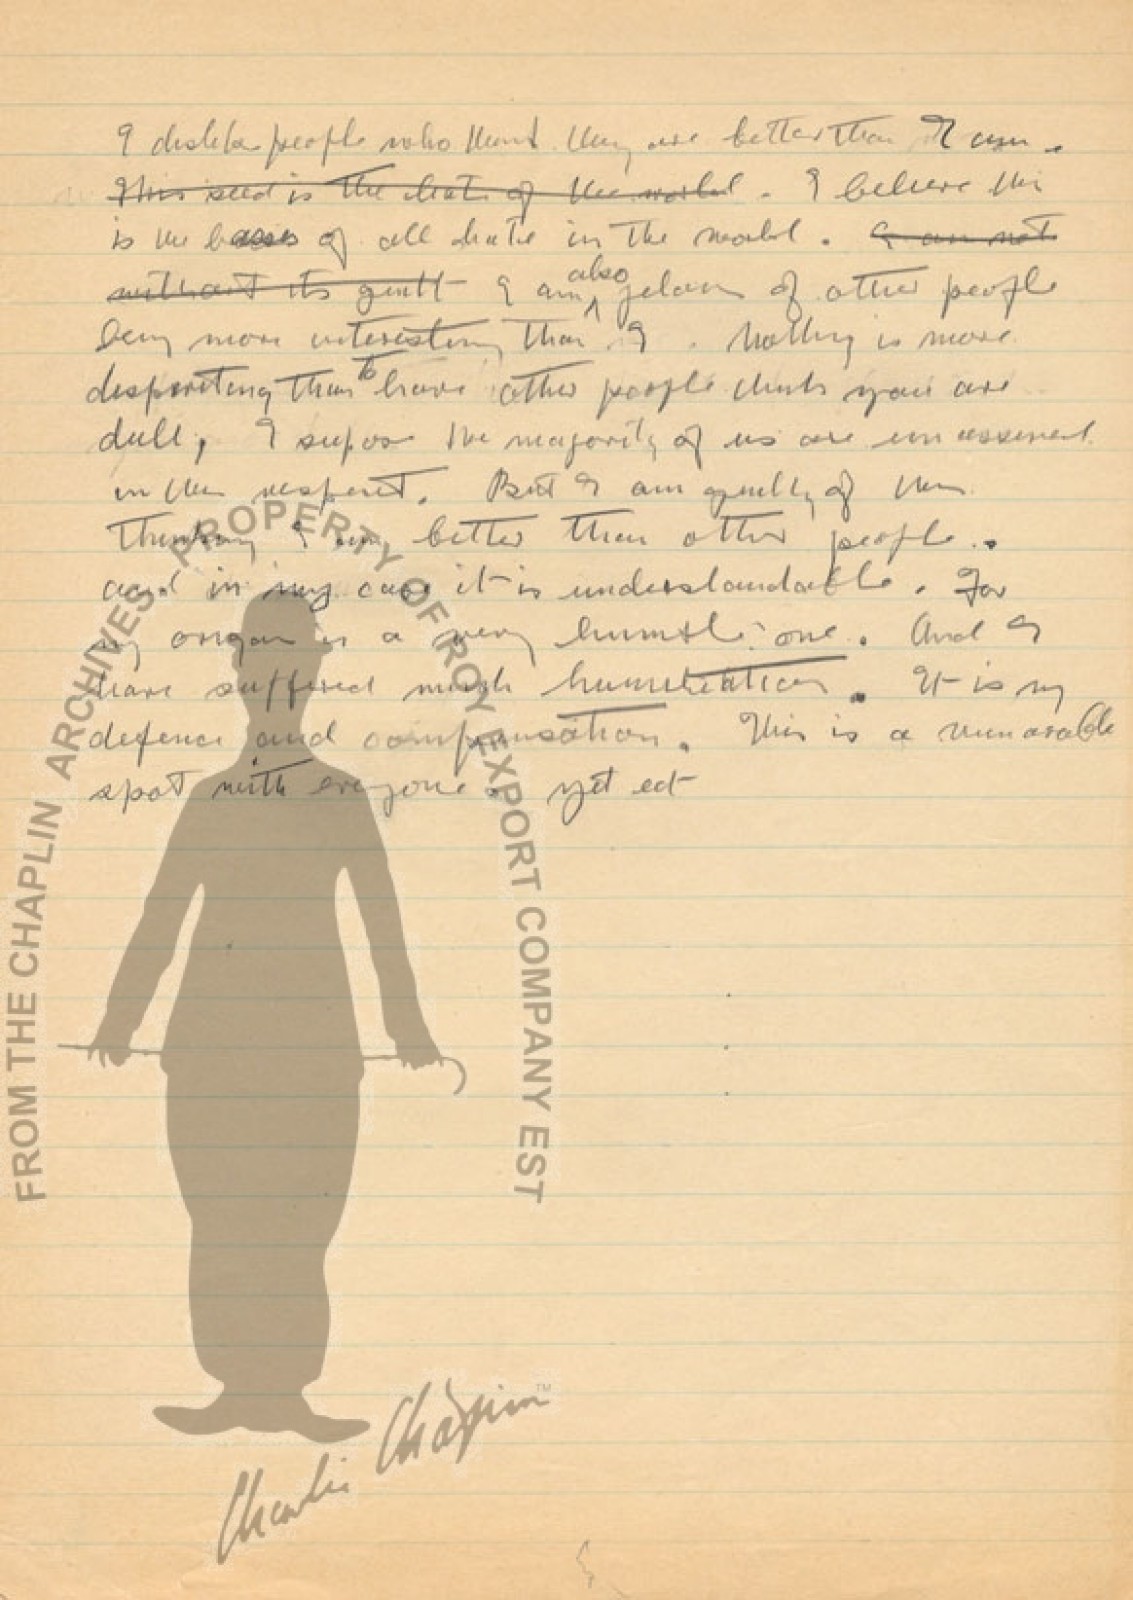 I dislike people who think they are better than I am.
This seed is the hate of the world. I believe this
is the bases of all hate in the world. I am not
without its guilt I am also jelous of other people
being more interesting than I. Nothing is more
dispiriting than to have other people think you are
dull, I supose the majority of us are
in this respect. But I am guilty of this
thinking I am better than other people.
and in my case it is understandable. For
my origan is a very humble one. And I
have suffered much humiliation. It is my
defence and compensation. This is a
spot with everyone. yet
FROM THE CHAPLIN ARCHIVES PROPERTY OF ROY EXPORT COMPANY EST
Charlie Chaplin™